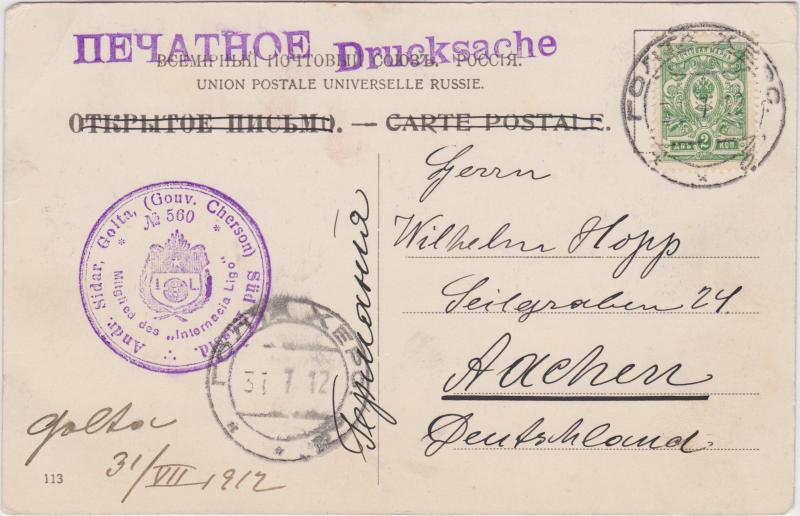 ПЕЧАТНОЕ Drucksache
ВСЕМІРНЫЙ ПОЧТОВЫЙ СОЮЗЪ. РОССІЯ.
UNION POSTALE UNIVERSELLE RUSSIE.
ОТКРЫТОЕ ПИСЬМО. — CARTE POSTALE.
ГОЛТА ХЕРС.
2
КОП.
Andr. Sidar, Golta, (Gouv. Cherson) Süd
№ 560
I L
Mitglied des „Internacia Ligo"
ГОЛТА ХЕРС
31 7 12
Германія
Herrn
Wilhelm Hopp
Seilgraben 24.
Aachen
Deutschland.
Golta
31/VII 1912
113